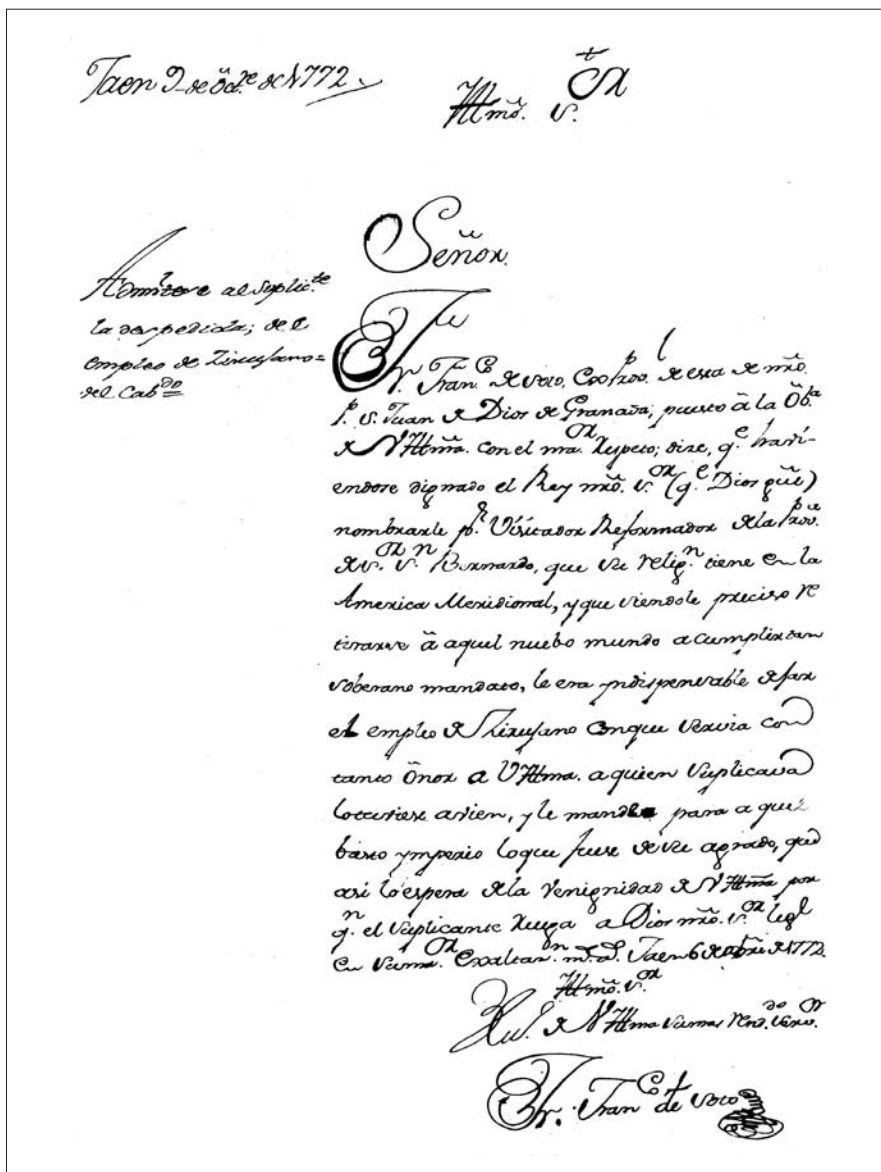 Jaen 9 de Octre. de 1772
Illmo. Sr.
Señor.
Admitese al Suplicte.
la despedida; de el
empleo de Zirujano =
del Cabdo.
Fr. Franco. de Soto, Expror. de esta de nro.
P. S. Juan de Dios de Granada, puesto â la Oba.
de V Illma. con el mar. respeto; dize, qe. havi-
endose dignado el Rey nro. Sor. (qe. Dios gûe)
nombrarle pr. Visitador Reformador de la Prova.
de Sor. Sn. Bernardo, que su relign. tiene en la
America Meridional, y que siendole preciso re
tirarse â aquel nuebo mundo a cumplir tan
soberano mandato, le era yndispensable dejar
el empleo de Zirujano con que servia con
tanto ônor a VIllma. a quien suplicava
lo tuviese avien, y le mande para a quel
basto ymperio lo que fuese de su agrado, que
asi lo espera de la venignidad de VIllma por
qn. el suplicante ruega a Dios nro. Sor.
en suma. Exaltaon. ms. as. Jaen 6 de 1772.
Illmo. Sor.
de VIllma su mas rendo. servor.
Fr. Franco. de Soto